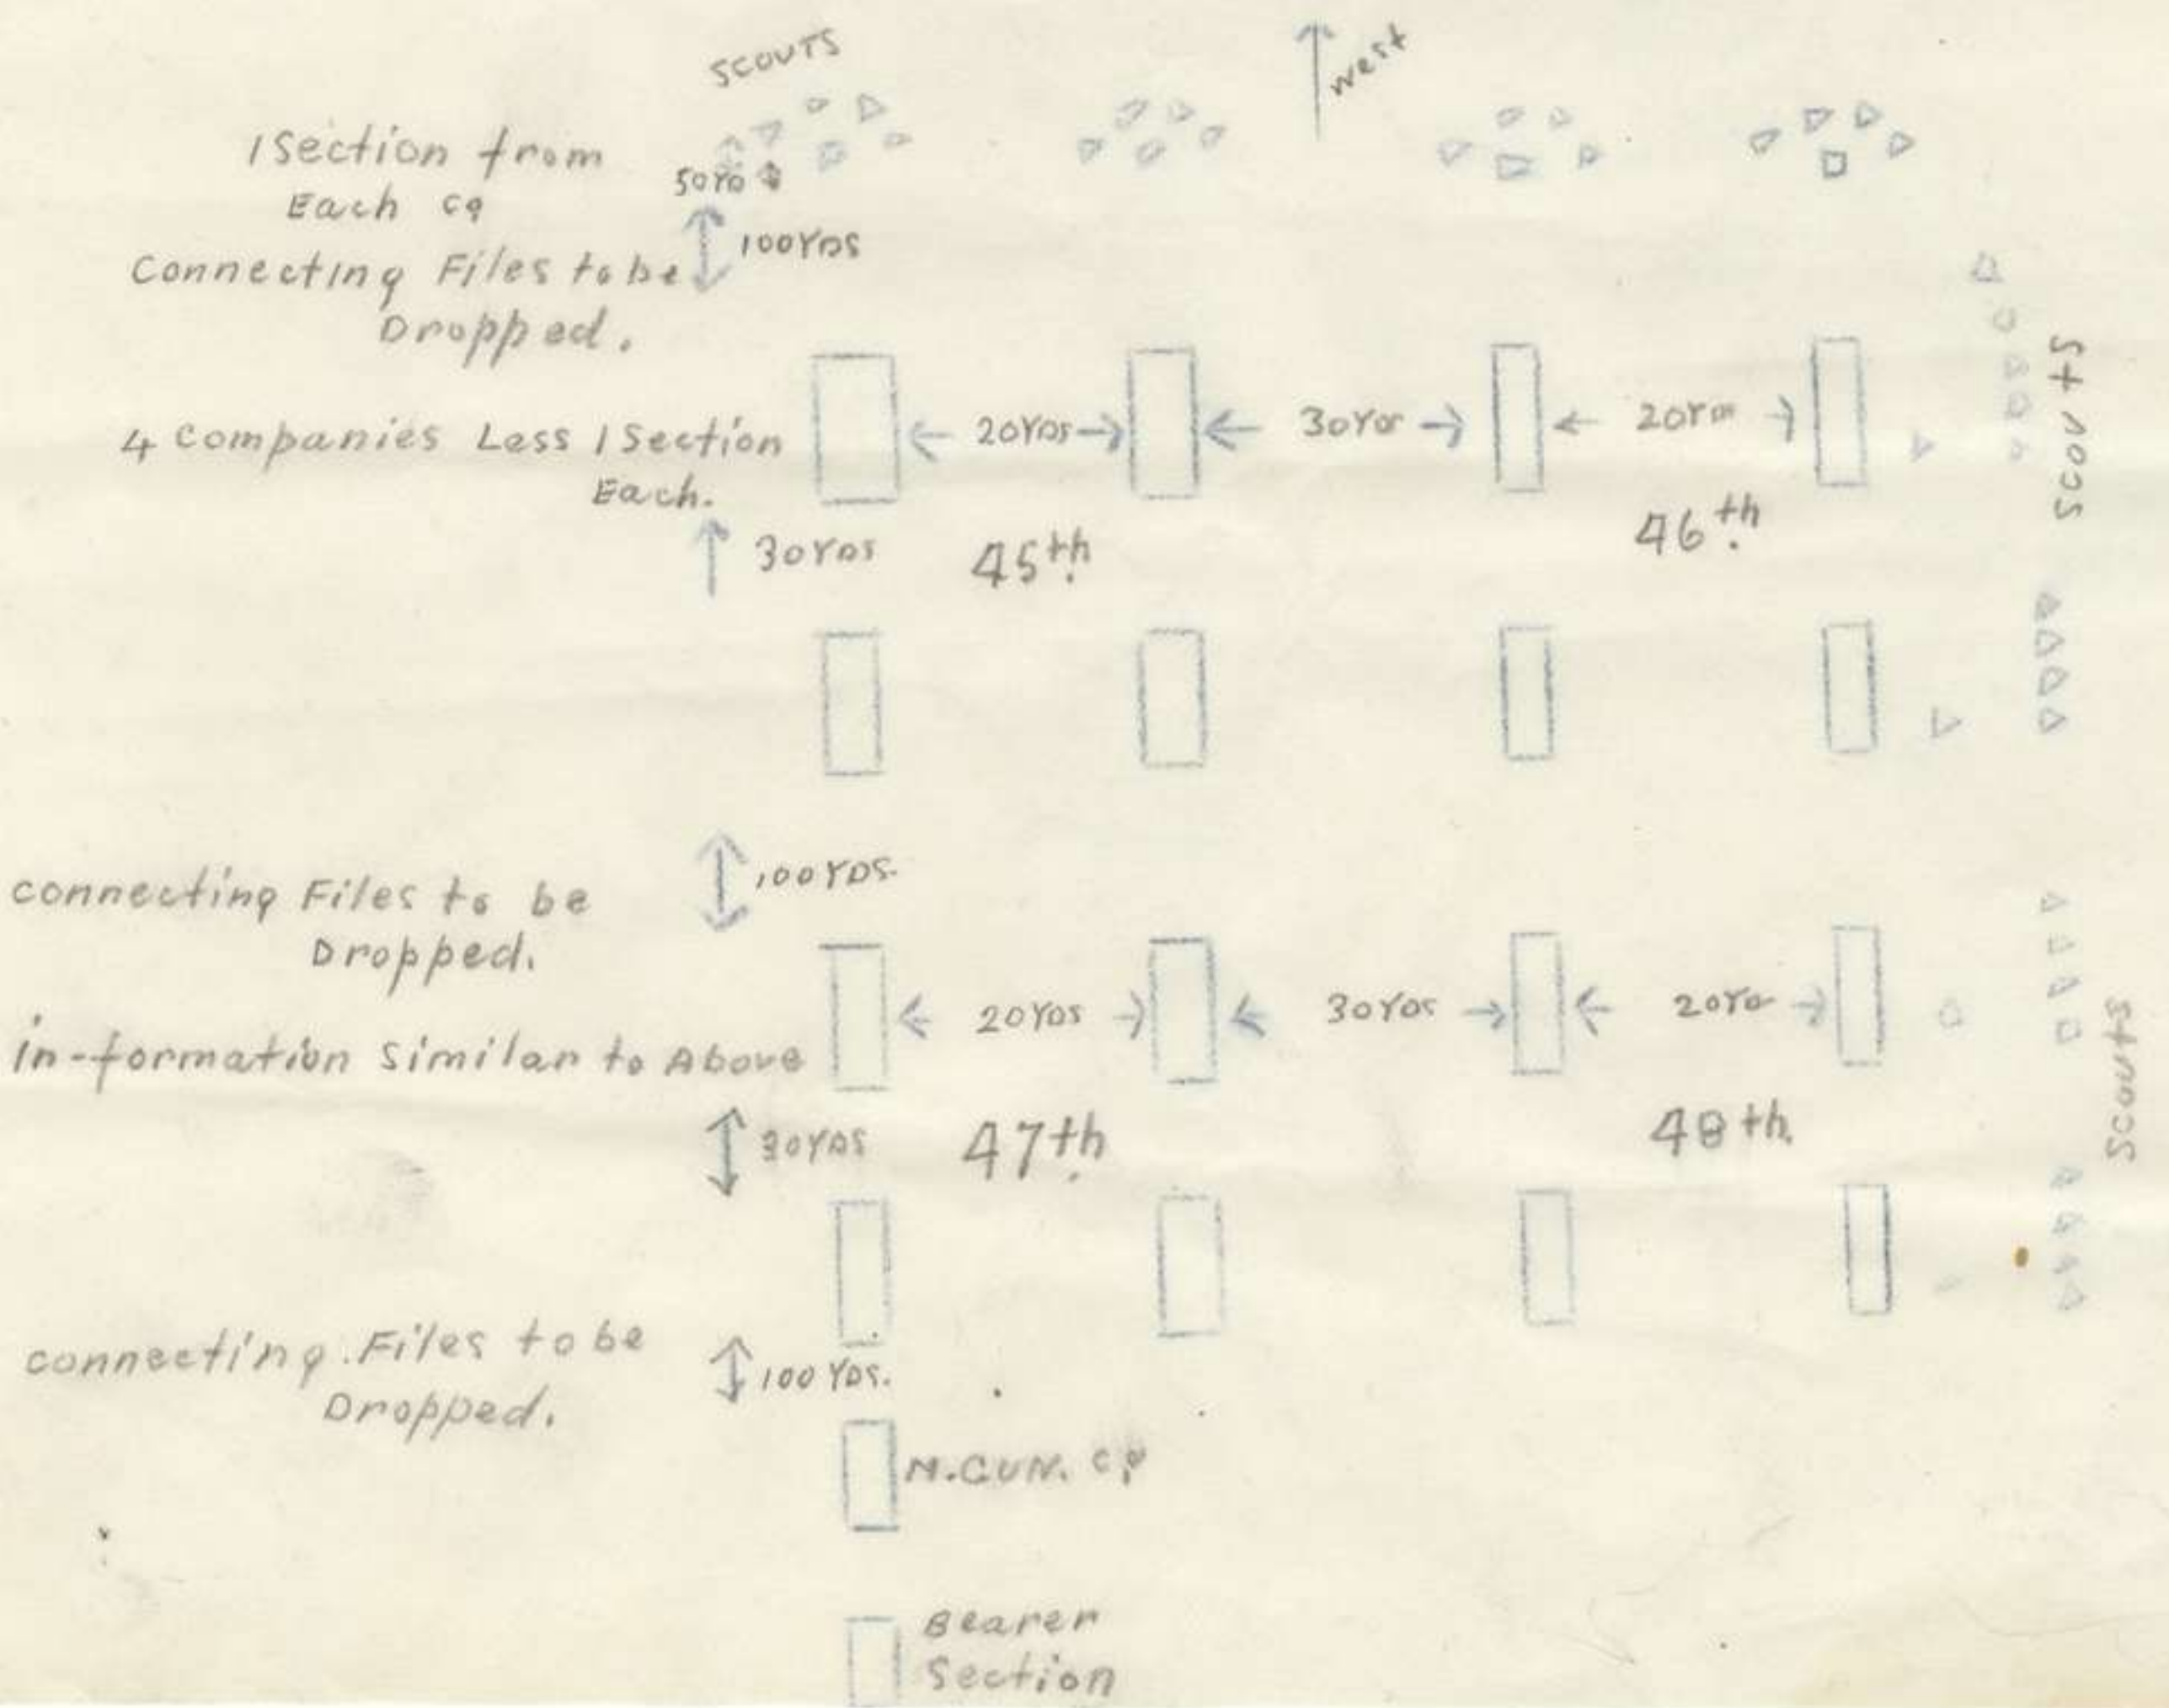 SCOUTS
West
1 Section from
Each Co
50 YD
100 YDS
Connecting Files to be
Dropped.
4 Companies Less 1 Section
Each.
20 YDS
30 YDS
20 YDS
Scouts
30 YDS
45th
46th
100 YDS.
connecting Files to be
Dropped.
20 YDS
30 YDS
20 YD
in-formation Similar to Above
Scouts
30 YDS
47th
48th.
connecting Files to be
Dropped.
100 YDS.
M.GUN. Co
Bearer
Section